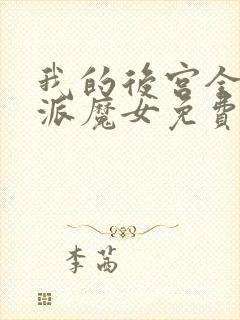 我的後宮全
派魔女免費
李茜